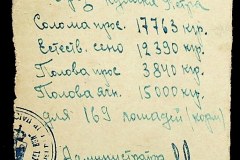 Солома прос. 17763 кур.
Естеств. сено 12390 кур.
Полова прос 3840 кур.
Полова ячн. 15000 кур.
для 169 лошадей (корм)
Администратор